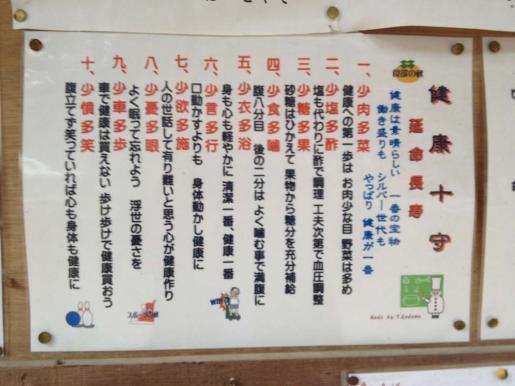 健康十守
延命長寿
健康は素晴らしい 一番の宝物
働き盛りも シルバー世代も
やっぱり 健康が一番
一、少肉多菜
健康への第一歩は お肉少な目 野菜は多め
二、少塩多酢
塩も代わりに酢で調理 工夫次第で血圧調整
三、少糖多果
砂糖はひかえて 果物から糖分を充分補給
四、少食多噛
腹八分目 後の二分は よく噛む事で満腹に
五、少衣多浴
身も心も軽やかに 清潔一番、健康一番
六、少言多行
口動かすよりも 身体動かし健康に
七、少欲多施
人の世話して有り難いと思う心が健康作り
八、少憂多眠
よく眠って忘れよう 浮世の憂さを
九、少車多歩
車で健康は買えない 歩け歩けで健康買おう
十、少憤多笑
腹立てず笑っていれば心も身体も健康に
Made by T.Kodama